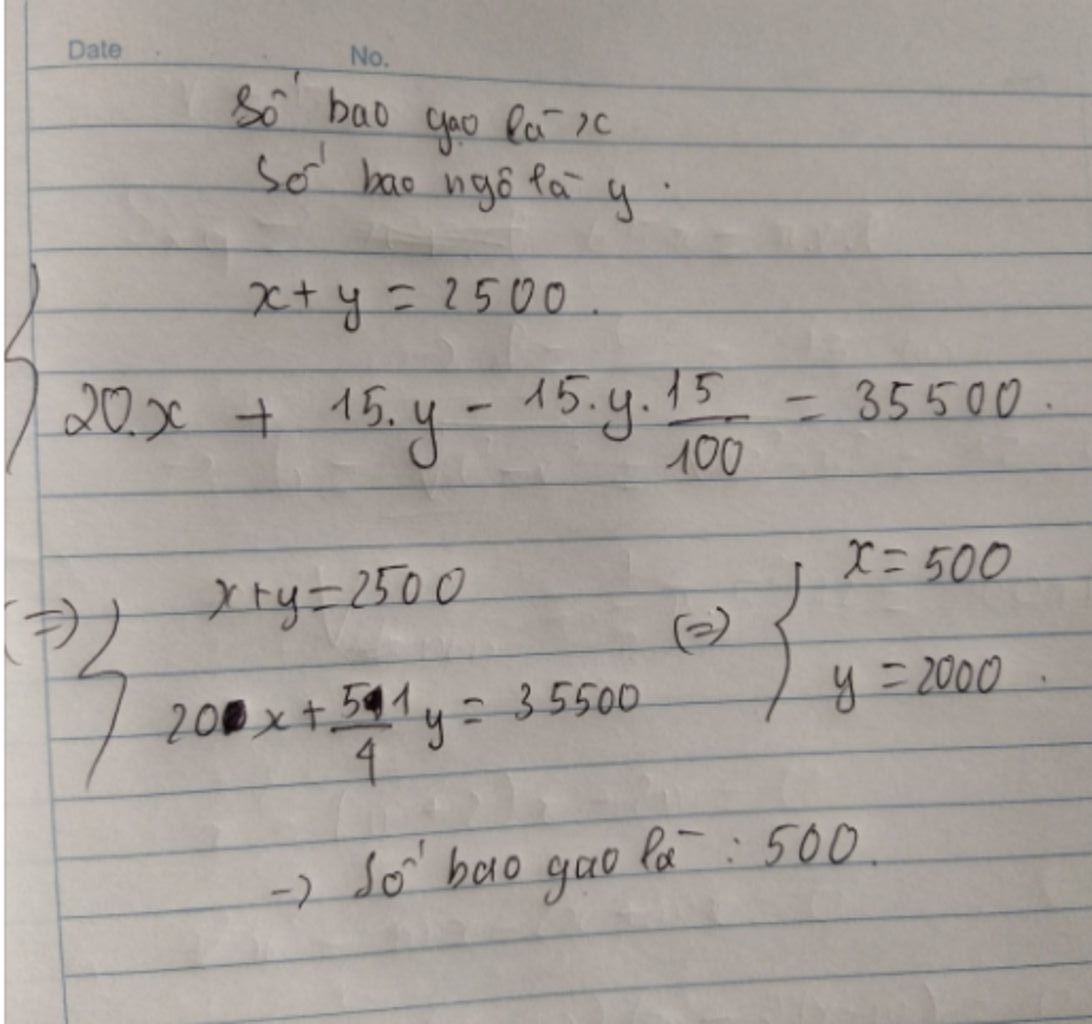 Date No.
Số bao gạo là x
Số bao ngô là y.
x + y = 2500.
20.x + 15.y - 15.y. 15/100 = 35500.
(=) x+y=2500 (=) x = 500
20x + 51/4 y = 35500 y = 2000.
-> Số bao gạo là : 500.